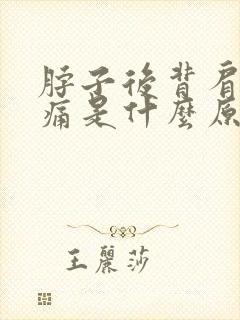 脖子後背肩
痛是什麼原
王麗莎